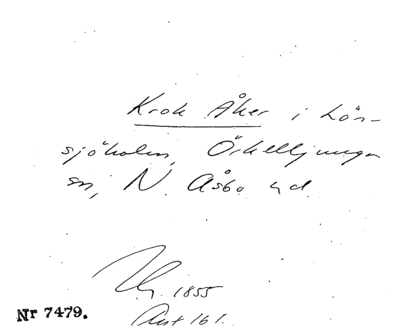 Krok Åker i Lön-
sjöholm, Örkelljunga
sn, N. Åsbo hd.
1855
Avt 161.
Nr 7479.